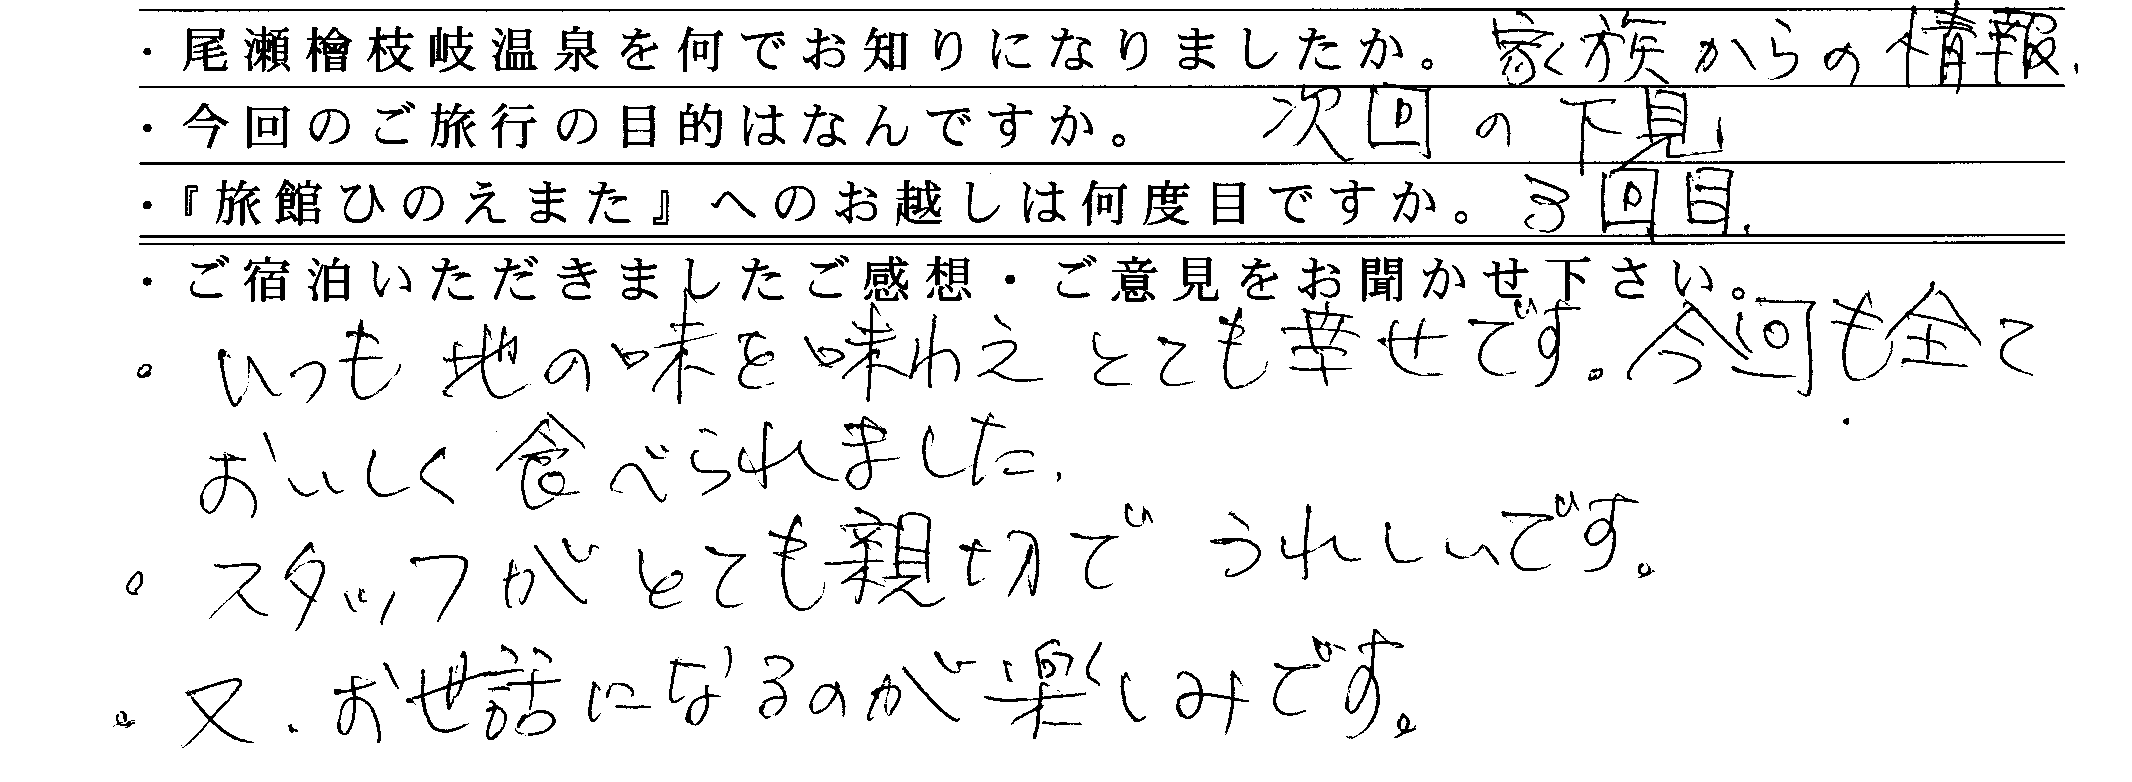 ・尾瀬檜枝岐温泉を何でお知りになりましたか。 家族からの情報.
・今回のご旅行の目的はなんですか。 次回の下見
・『旅館ひのえまた』へのお越しは何度目ですか。 3回目.
・ご宿泊いただきましたご感想・ご意見をお聞かせ下さい。
。いつも地の味を味わえとても幸せです。今回も全て
おいしく食べられました.
。スタッフがとても親切でうれしいです。
。又.お世話になるのが楽しみです。